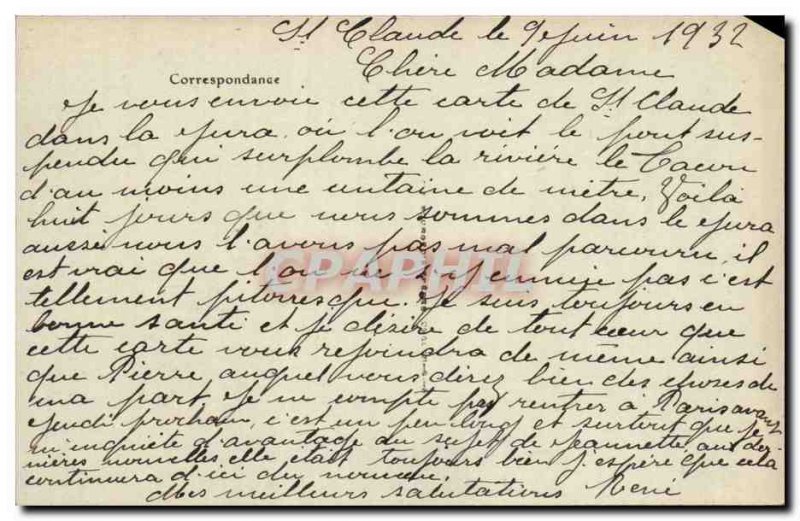 St Claude le 9 Juin 1932
Chère Madame
Correspondance
Je vous envoie cette carte de St Claude
dans la Jura, où l'on voit le pont sus-
pendu qui surplombe la rivière le Tacon
d'au moins une centaine de mètre, Voilà
huit jours que nous sommes dans le Jura
aussi nous l'avons pas mal parcouru, il
est vrai que l'on ne s'y ennuie pas c'est
tellement pitorresque. Je suis toujours en
bonne santé et je désire de tout cœur que
cette carte vous rejoindra de même ainsi
que Pierre auquel vous direz bien des choses de
ma part, Je ne compte pas rentrer à Paris avant
Jeudi prochain, c'est un peu long et surtout que je
m'inquiète d'avantage au sujet de Jeannette, aux der-
nières nouvelles elle était toujours bien j'espère que cela
continuera d'ici du nouveau.
Mes meilleurs salutations René
CPAPHIL